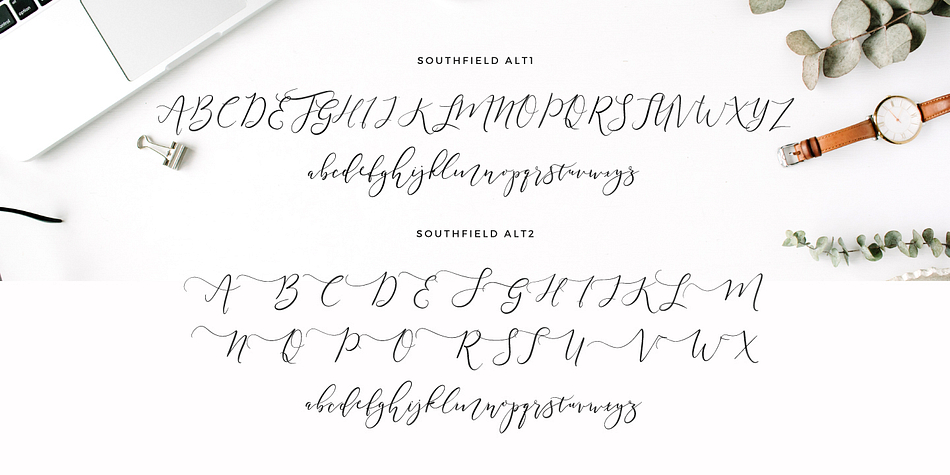 SOUTHFIELD ALT1
ABCDEFGHIJKLMNOPQRSTUVWXYZ
abcdefghijklmnopqrstuvwxyz
SOUTHFIELD ALT2
A B C D E F G H I J K L M
N Q P O R S T U V W X
abcdefghijklmnopqrstuvwxyz